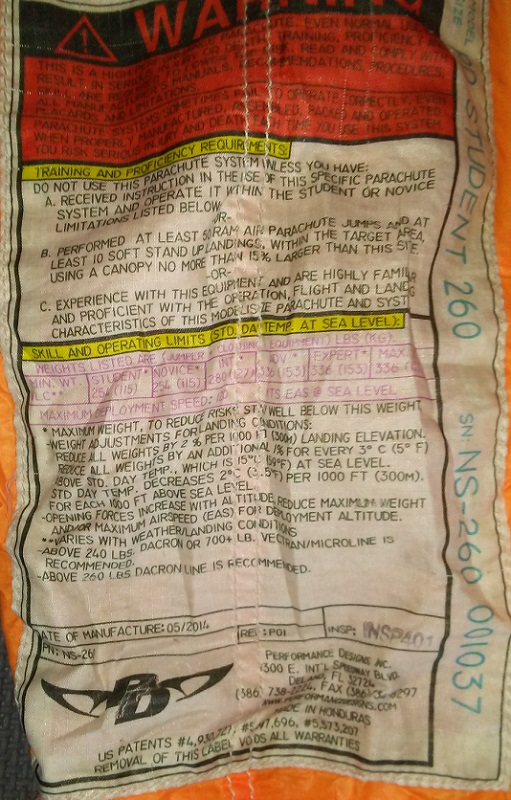 WARNING
THIS IS A
RESULT IN SERIOUS
READ AND COMPLY WITH
MANUALS, RECOMMENDATIONS, PROCEDURES,
PLACARDS AND LIMITATIONS.
PARACHUTE SYSTEMS SOMETIMES FAIL TO OPERATE CORRECTLY, EVEN
WHEN PROPERLY MANUFACTURED, ASSEMBLED, PACKED AND OPERATED.
YOU RISK SERIOUS INJURY AND DEATH EACH TIME YOU USE THIS SYSTEM
TRAINING AND PROFICIENCY REQUIREMENTS:
DO NOT USE THIS PARACHUTE SYSTEM UNLESS YOU HAVE:
A. RECEIVED INSTRUCTION IN THE USE OF THIS SPECIFIC PARACHUTE
SYSTEM AND OPERATE IT WITHIN THE STUDENT OR NOVICE
LIMITATIONS LISTED BELOW
-OR-
B. PERFORMED AT LEAST 50 RAM AIR PARACHUTE JUMPS AND AT
LEAST 10 SOFT STAND UP LANDINGS, WITHIN THE TARGET AREA,
USING A CANOPY NO MORE THAN 15% LARGER THAN THIS SIZE.
-OR-
C. EXPERIENCE WITH THIS EQUIPMENT AND ARE HIGHLY FAMIL
AND PROFICIENT WITH THE OPERATION, FLIGHT AND LANDG
CHARACTERISTICS OF THIS MODEL SIZE PARACHUTE AND SYST
SKILL AND OPERATING LIMITS (STD. DAY TEMP. AT SEA LEVEL):
WEIGHTS LISTED ARE (JUMPER CLOTHING EQUIPMENT) LBS (KG).
MIN. WT. STUDENT* NOVICE* INT* ADV* EXPERT* MAX
254 (115) 254 (115) 280 (127) 336 (153) 336 (153) 336
MAXIMUM DEPLOYMENT SPEED: KNOTS EAS @ SEA LEVEL
* MAXIMUM WEIGHT, TO REDUCE RISKS STAY WELL BELOW THIS WEIGHT
-WEIGHT ADJUSTMENTS FOR LANDING CONDITIONS:
REDUCE ALL WEIGHTS BY 2 % PER 1000 FT (300M) LANDING ELEVATION.
REDUCE ALL WEIGHTS BY AN ADDITIONAL 1% FOR EVERY 3° C (5° F)
ABOVE STD. DAY TEMP., WHICH IS 15°C (59°F) AT SEA LEVEL.
STD DAY TEMP. DECREASES 2°C (3.5°F) PER 1000 FT (300M).
FOR EACH 1000 FT ABOVE SEA LEVEL.
-OPENING FORCES INCREASE WITH ALTITUDE, REDUCE MAXIMUM WEIGHT
AND/OR MAXIMUM AIRSPEED (EAS) FOR DEPLOYMENT ALTITUDE.
**VARIES WITH WEATHER/LANDING CONDITIONS
-ABOVE 240 LBS. DACRON OR 700+ LB. VECTRAN/MICROLINE IS
RECOMMENDED.
-ABOVE 260 LBS DACRON LINE IS RECOMMENDED.
DATE OF MANUFACTURE: 05/2014 REV.: P01 INSP: INSP401
PN: NS-26
PD
PERFORMANCE DESIGNS INC.
1300 E. INT'L SPEEDWAY BLVD.
DELAND, FL 32724
(386) 738-2224, FAX (386) 734-8297
WWW.PERFORMANCEDESIGNS.COM
MADE IN HONDURAS
US PATENTS #4,930,727, #5,197,696, #5,573,207
REMOVAL OF THIS LABEL VOIDS ALL WARRANTIES
MODEL
SIZE
STUDENT 260
SN: NS-260 001037